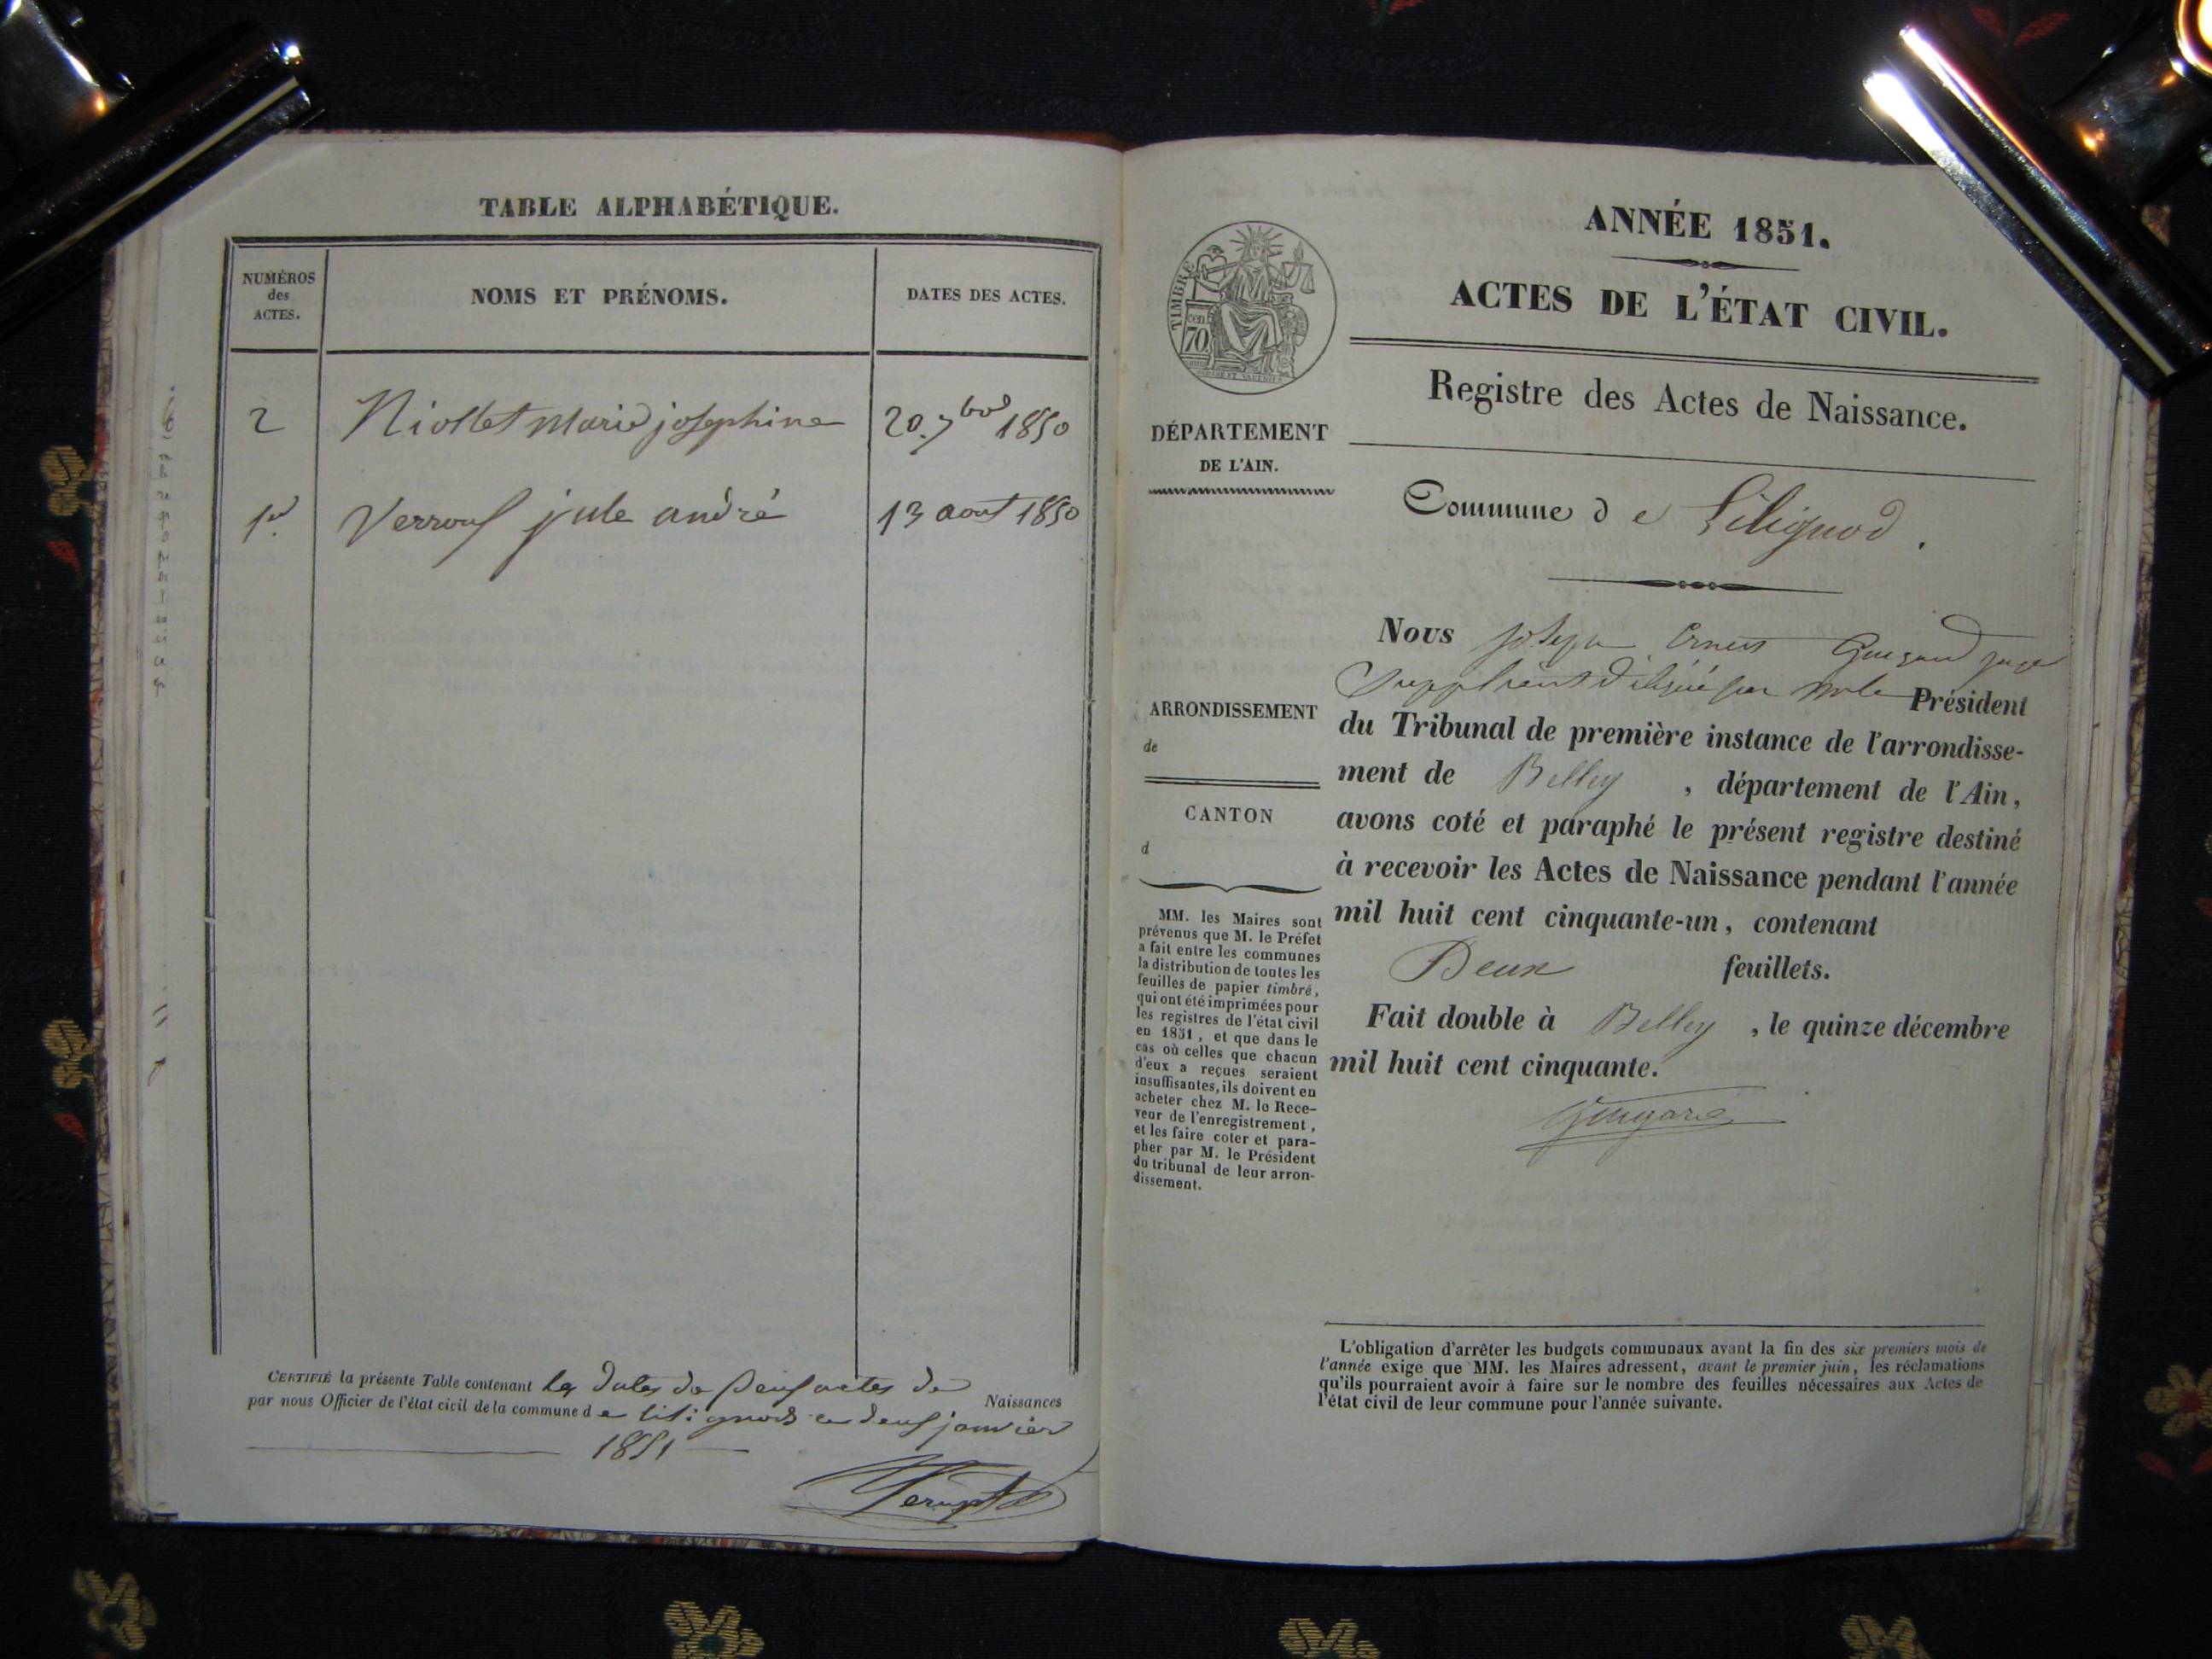 TABLE ALPHABÉTIQUE.
NUMÉROS
des
ACTES.
NOMS ET PRÉNOMS.
DATES DES ACTES.
2 Niollet marie josephine 20. 7bre 1850
1er jule andré 13 aout 1850
CERTIFIÉ la présente Table contenant les dates de deux actes de Naissances
par nous Officier de l'état civil de la commune de Lilignod ce deux janvier
1851
ANNÉE 1851.
ACTES DE L'ÉTAT CIVIL.
Registre des Actes de Naissance.
TIMBRE
cent
70
DÉPARTEMENT
DE L'AIN.
Commune de Lilignod.
Nous Joseph Ernest juge
Suppléant délégué par mr le Président
du Tribunal de première instance de l'arrondisse-
ment de Belley, département de l'Ain,
avons coté et paraphé le présent registre destiné
à recevoir les Actes de Naissance pendant l'année
mil huit cent cinquante-un, contenant
Deux feuillets.
Fait double à Belley, le quinze décembre
mil huit cent cinquante.
ARRONDISSEMENT
de
CANTON
d
MM. les Maires sont
prévenus que M. le Préfet
a fait entre les communes
la distribution de toutes les
feuilles de papier timbré,
qui ont été imprimées pour
les registres de l'état civil
en 1851, et que dans le
cas où celles que chacun
d'eux a reçues seraient
insuffisantes, ils doivent en
acheter chez M. le Rece-
veur de l'enregistrement,
et les faire coter et para-
pher par M. le Président
du tribunal de leur arron-
dissement.
L'obligation d'arrêter les budgets communaux avant la fin des six premiers mois de
l'année exige que MM. les Maires adressent, avant le premier juin, les réclamations
qu'ils pourraient avoir à faire sur le nombre des feuilles nécessaires aux Actes de
l'état civil de leur commune pour l'année suivante.